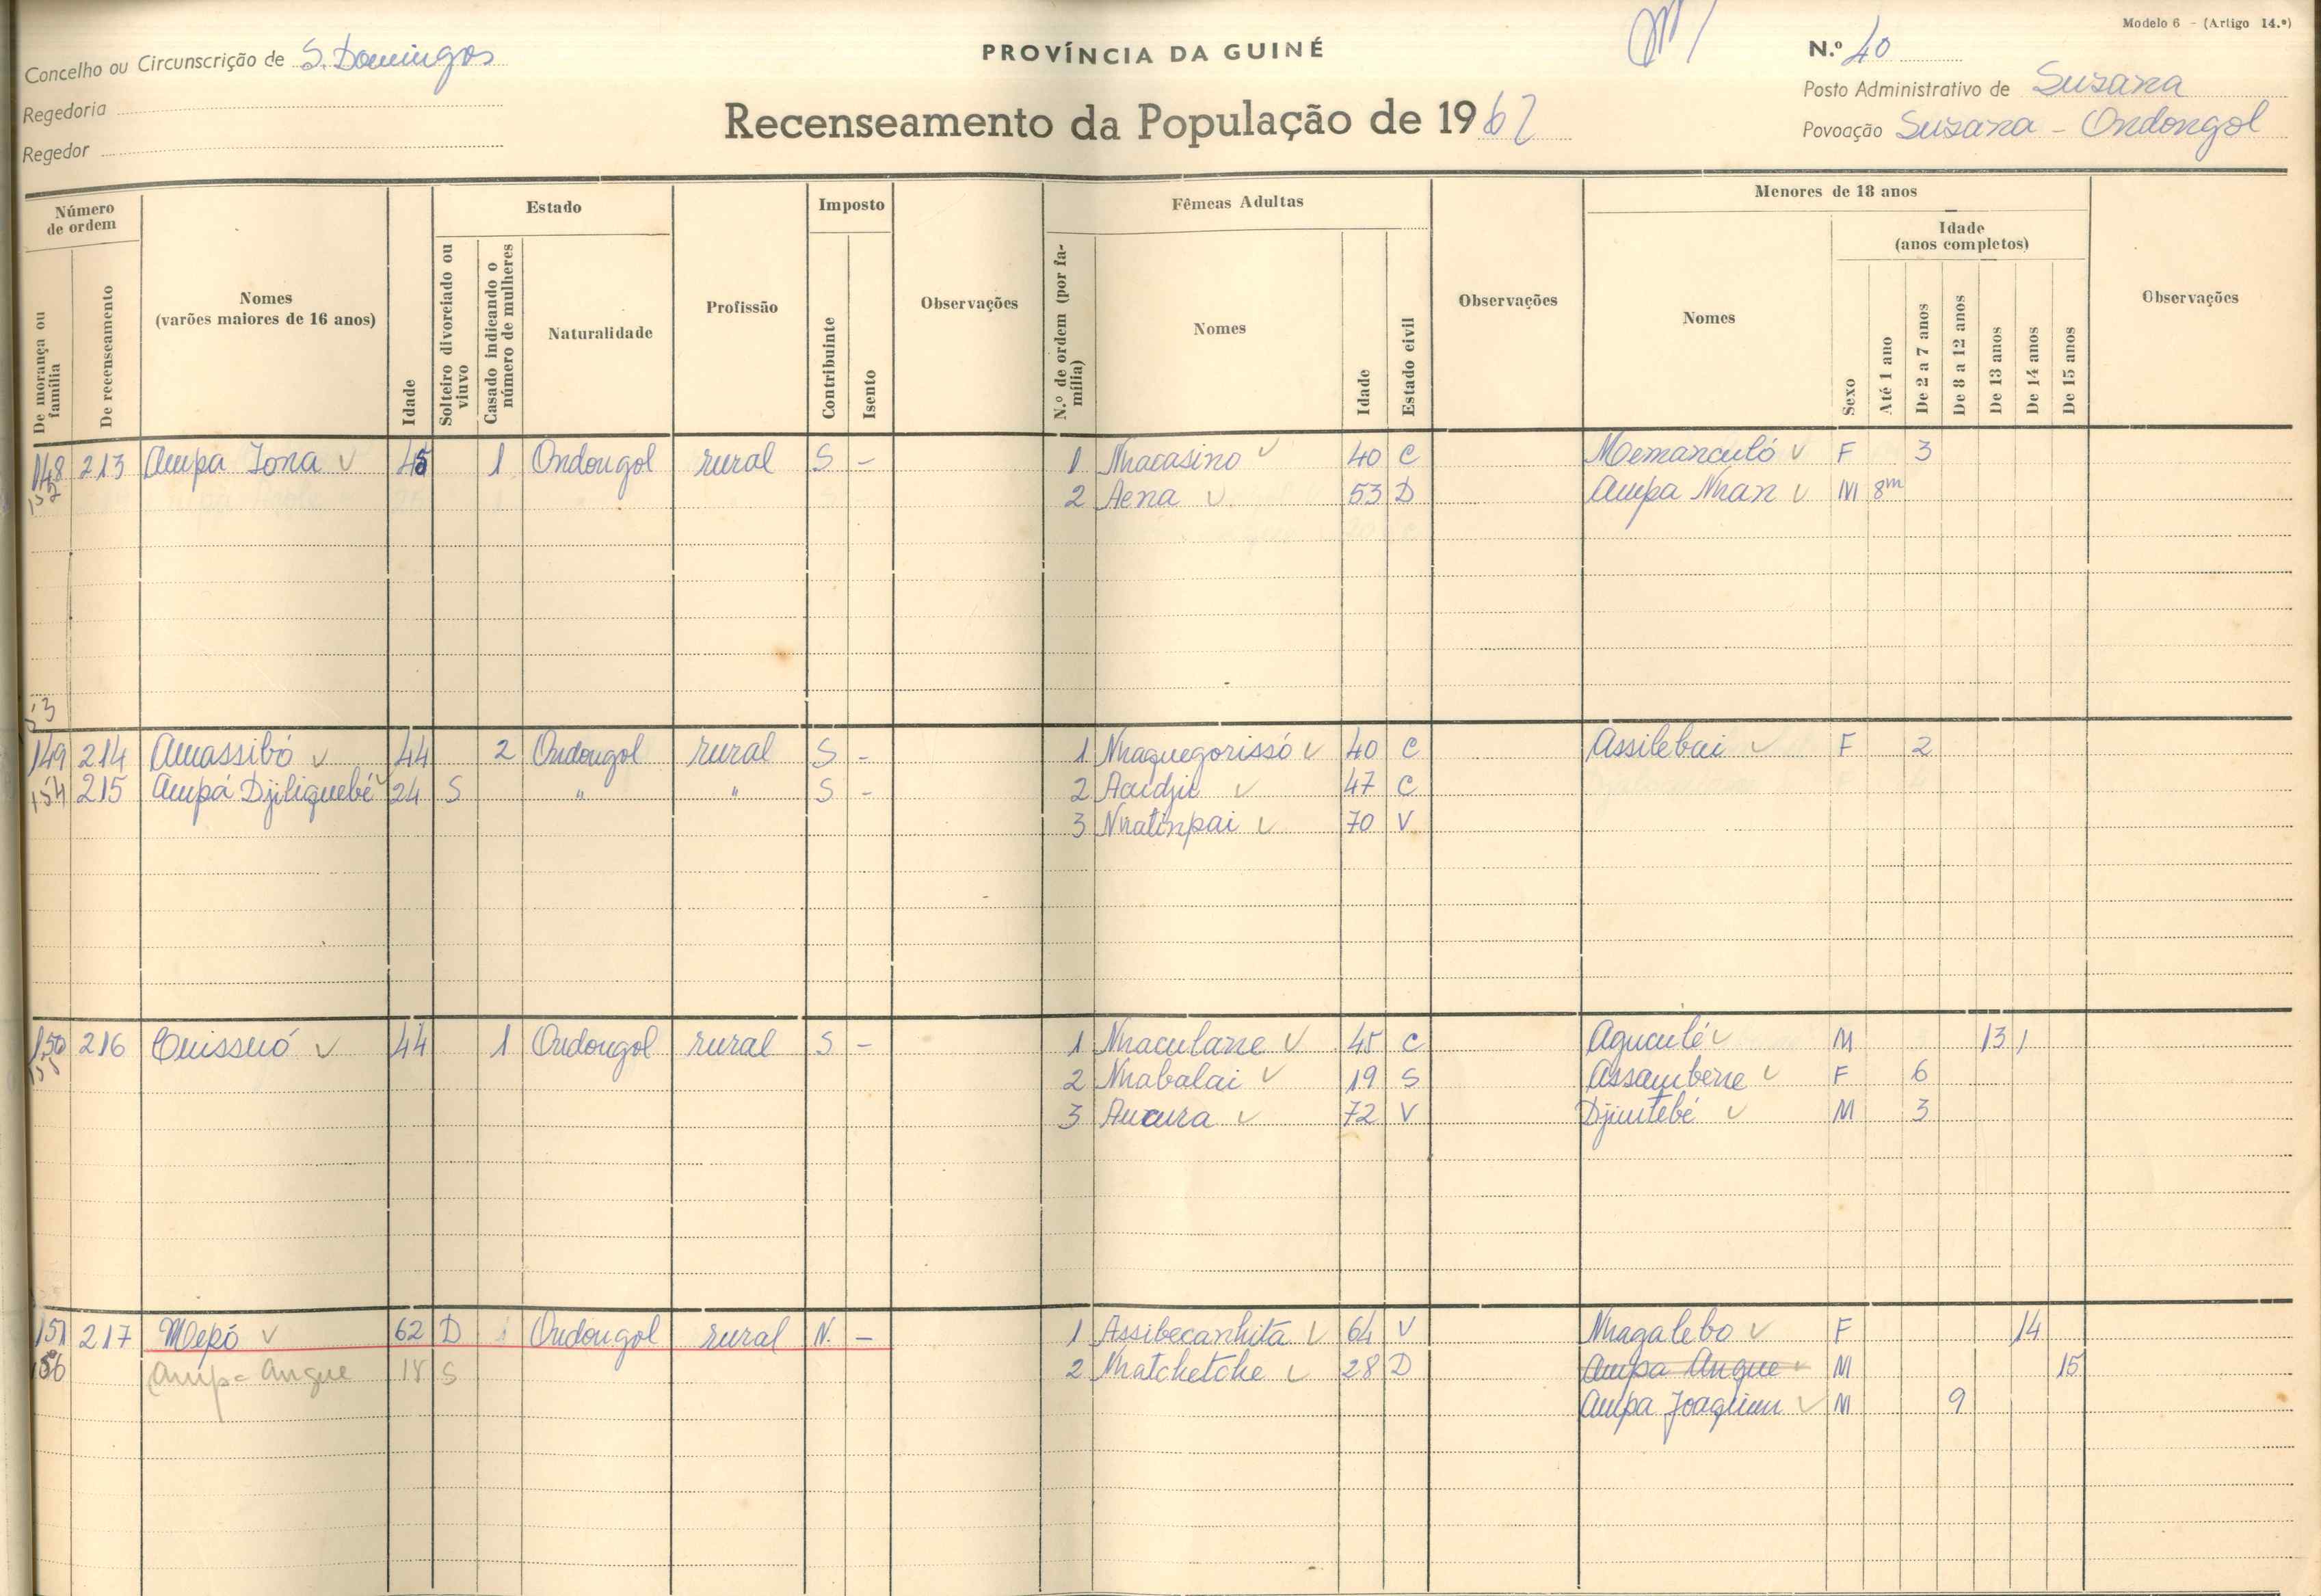 Modelo 6 - (Artigo 14.º)
Concelho ou Circunscrição de S. Domingos
PROVÍNCIA DA GUINÉ
N.º 40
Regedoria
Posto Administrativo de Susana
Regedor
Recenseamento da População de 1962
Povoação Susana - Ondongol
Número de ordem
De morança ou família
De recenseamento
Nomes
(varões maiores de 16 anos)
Idade
Estado
Solteiro divorciado ou viuvo
Casado indicando o número de mulheres
Naturalidade
Profissão
Imposto
Contribuinte
Isento
Observações
Fêmeas Adultas
N.º de ordem (por família)
Nomes
Idade
Estado civil
Observações
Menores de 18 anos
Nomes
Idade
(anos completos)
Sexo
Até 1 ano
De 2 a 7 anos
De 8 a 12 anos
De 13 anos
De 14 anos
De 15 anos
Observações
148 213 Ampa Iona 45 1 Ondongol rural S - 1 Nhacasino 40 C Memanculó F 3
2 Aena 53 D Ampa Nhan M 8m
53
149 214 Amassibó 44 2 Ondongol rural S - 1 Nhaquegorissó 40 C Assilebai F 2
154 215 Ampá Djiliquebé 24 S " " S - 2 47 C
3 Nhatinpai 70 V
150 216 44 1 Ondongol rural S - 1 Nhaculane 45 C Aguculé M 13
2 Nhabalai 19 S Assambene F 6
3 72 V Djintebé M 3
151 217 Mepó 62 D Ondongol rural N. - 1 Assibecanhita 64 V Nhagalebo F 14
156 Ampa Angue 18 S 2 Nhatchetche 28 D Ampa Angue M 15
Ampa Joaquim M 9